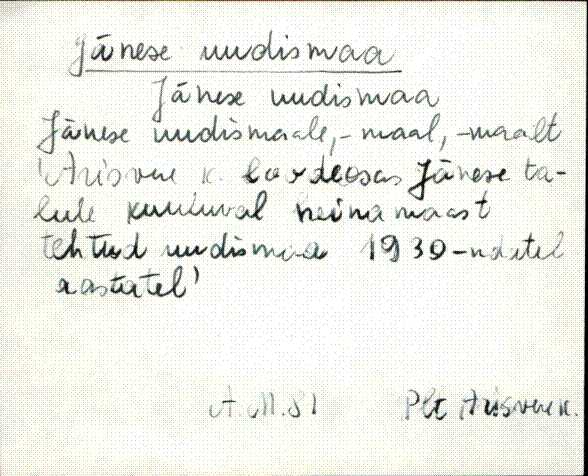 Jänese uudismaa
Jänese uudismaa
Jänese uudismaale, -maal, -maalt
'Arisvere k. loodeosas Jänese ta-
lule kuuluval heinamaast
tehtud uudismaa 1930-ndatel
aastatel'
A.M.81 Plt Arisvere k.